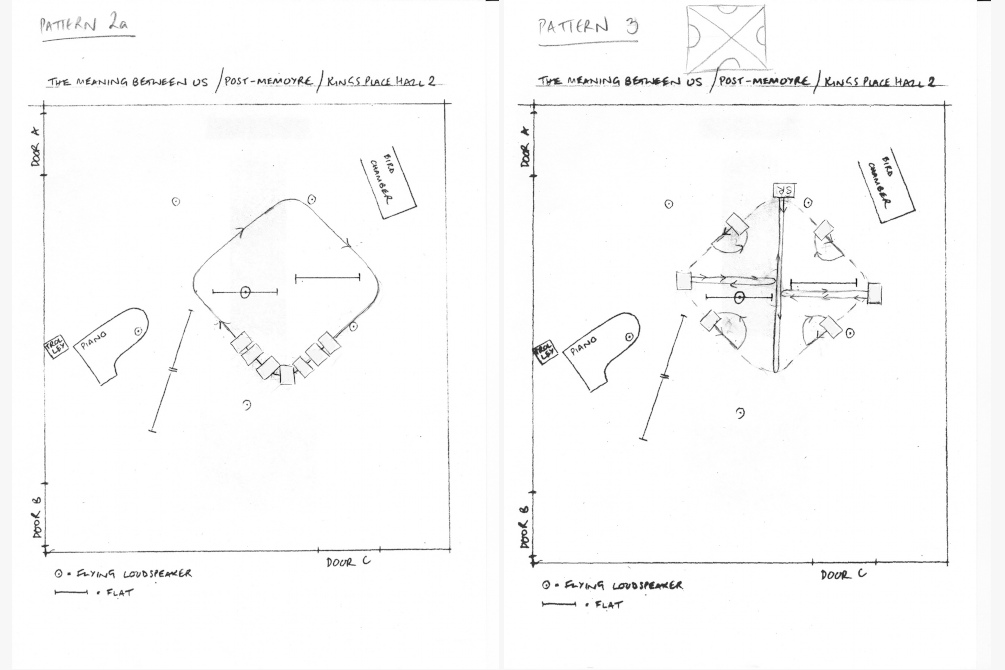 PATTERN 2a
THE MEANING BETWEEN US / POST-MEMOYRE / KINGS PLACE HALL 2
DOOR A
BIRD
CHAMBER
TROL
LEY
PIANO
DOOR B
DOOR C
⊙ = FLYING LOUDSPEAKER
= FLAT
PATTERN 3
THE MEANING BETWEEN US / POST-MEMOYRE / KINGS PLACE HALL 2
DOOR A
BIRD
CHAMBER
SR
TROL
LEY
PIANO
DOOR B
DOOR C
⊙ = FLYING LOUDSPEAKER
= FLAT